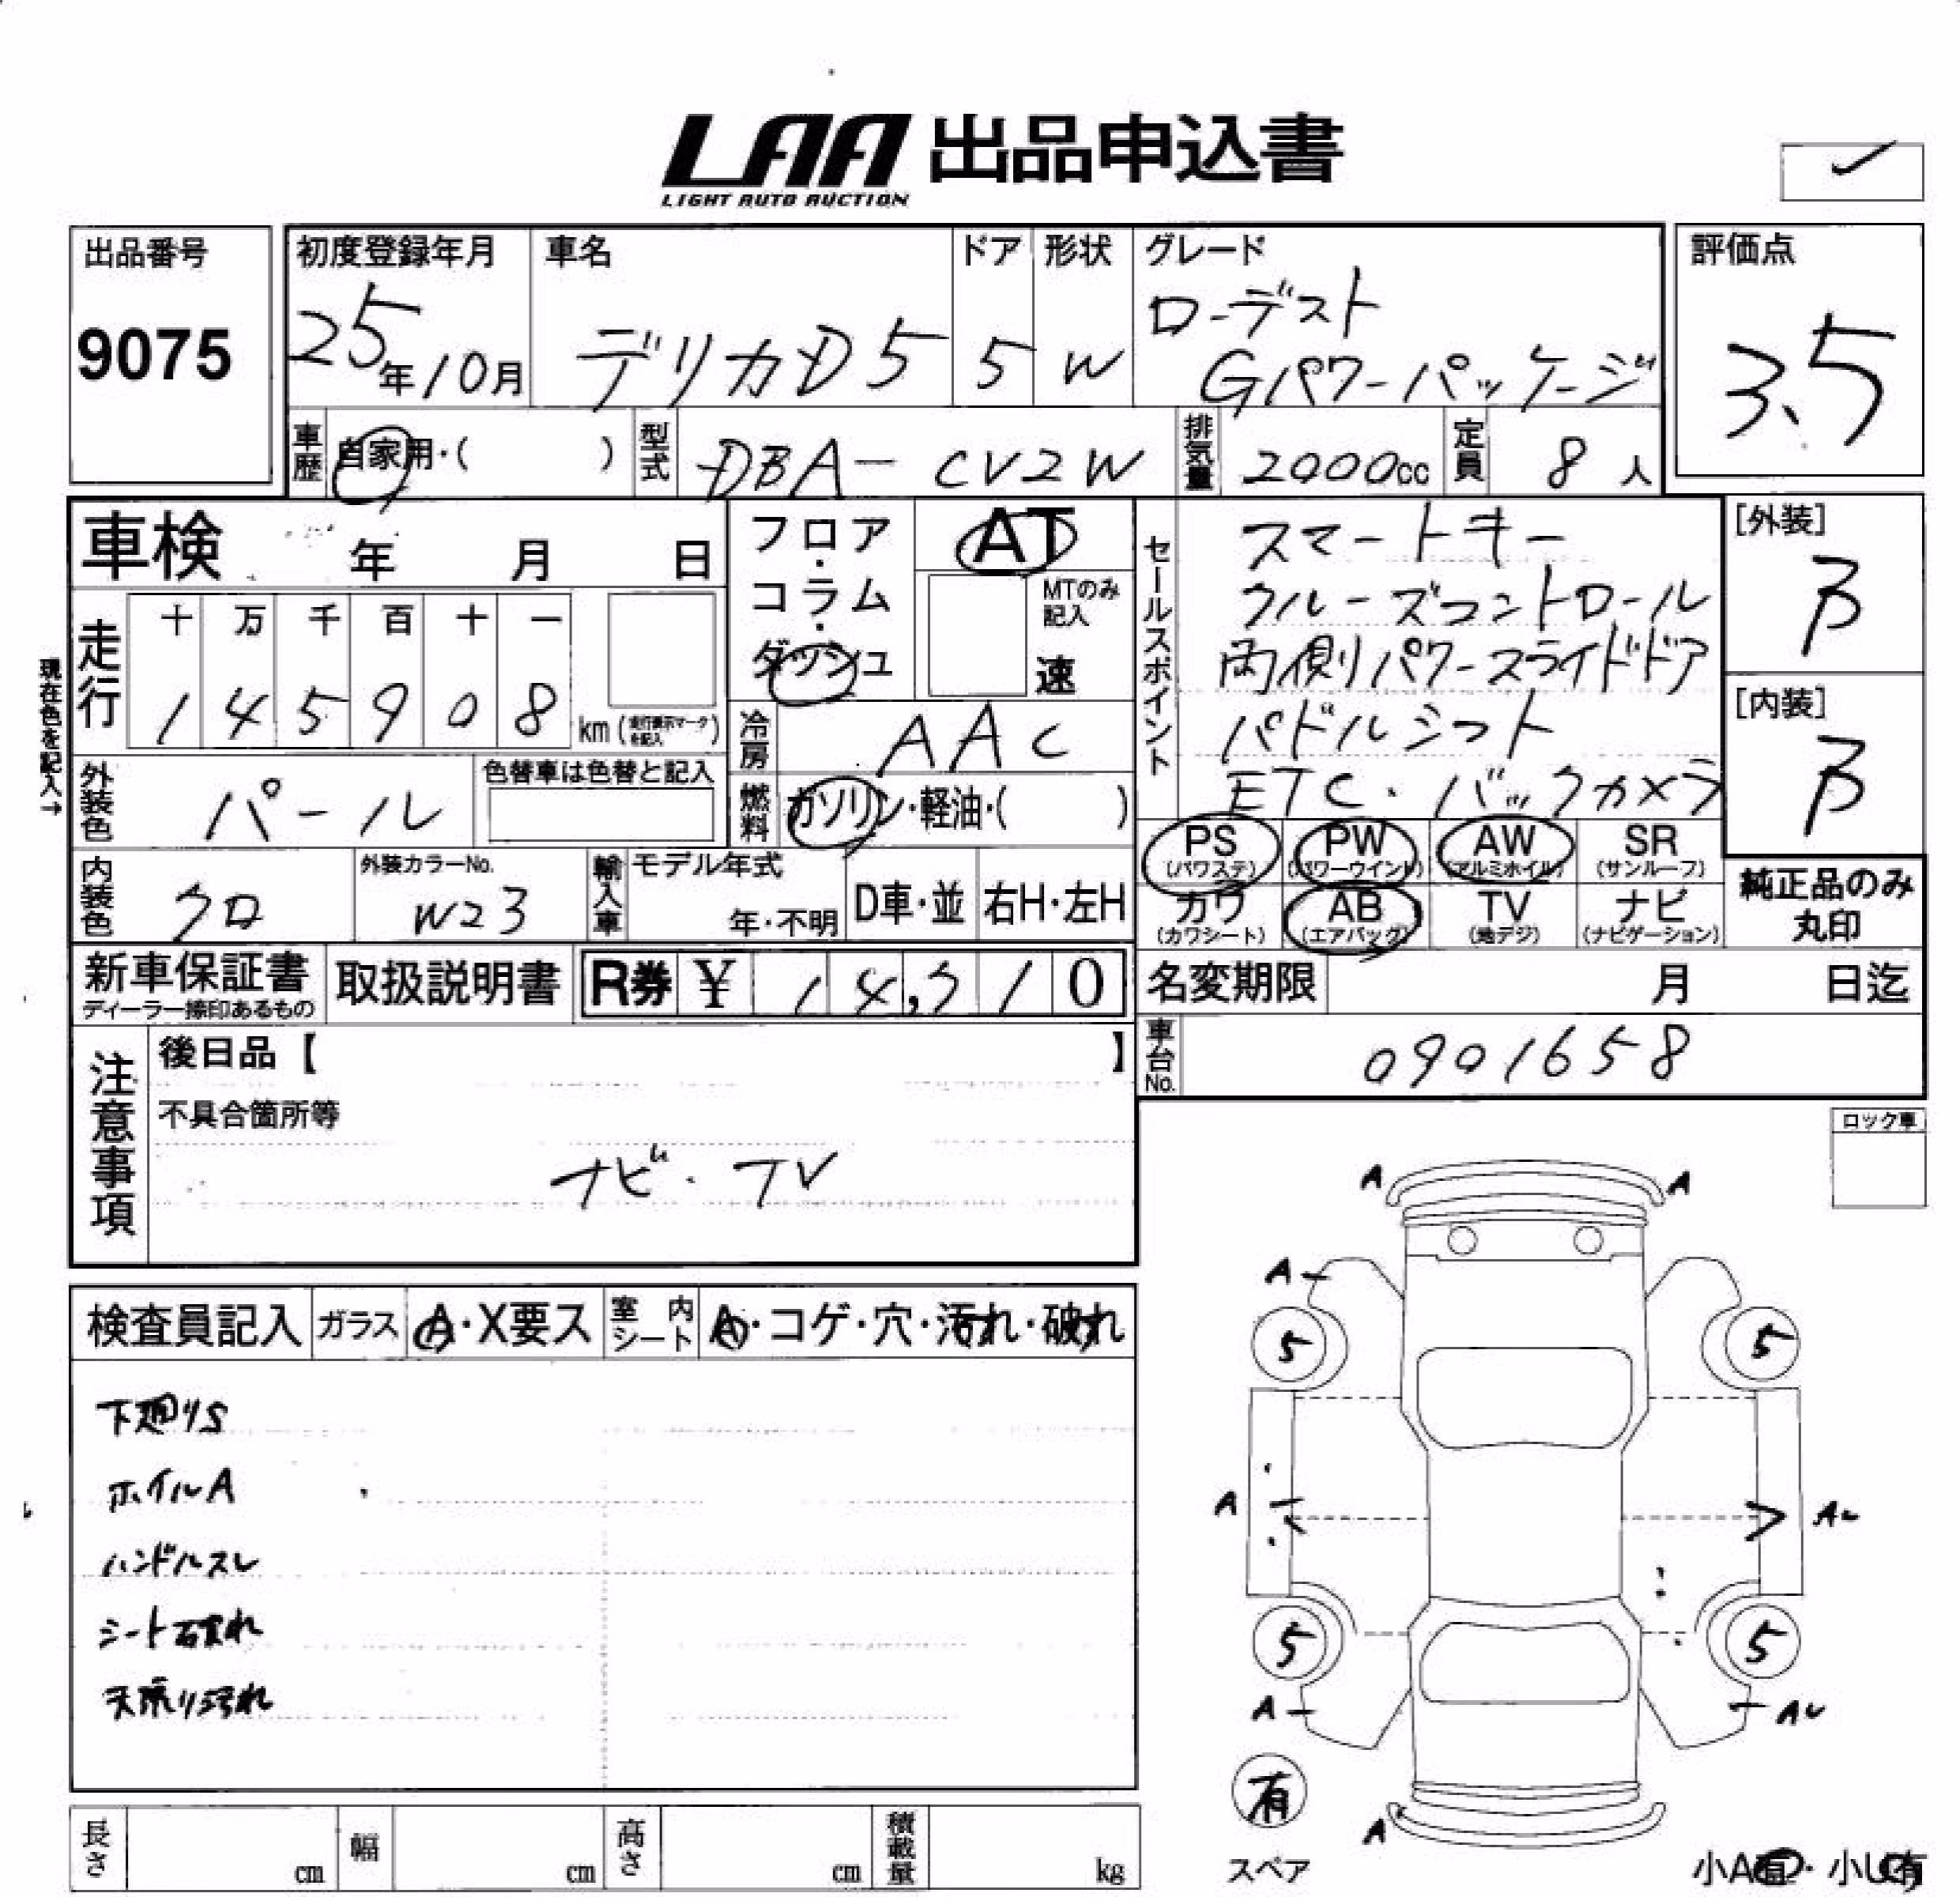 LAA 出品申込書
LIGHT AUTO AUCTION
出品番号
9075
初度登録年月
25年10月
車名
デリカD5
ドア
5
形状
W
グレード
ローデスト
Gパワーパッケージ
評価点
3.5
車歴
自家用・( )
型式
DBA-CV2W
排気量
2000cc
定員
8人
車検 年 月 日
フロア・コラム・ダッシュ
AT
MTのみ記入
速
セールスポイント
スマートキー
クルーズコントロール
両側パワースライドドア
パドルシフト
ETC・バックカメラ
[外装]
B
[内装]
B
現在色を記入→
走行
十 万 千 百 十 一
1 4 5 9 0 8 km (走行表示マークを記入)
冷房
AAC
外装色
パール
色替車は色替と記入
燃料
ガソリン・軽油・( )
PS (パワステ)
PW (パワーウインド)
AW (アルミホイル)
SR (サンルーフ)
カワ (カワシート)
AB (エアバッグ)
TV (地デジ)
ナビ (ナビゲーション)
純正品のみ丸印
内装色
クロ
外装カラーNo.
W23
輸入車
モデル年式
年・不明
D車・並
右H・左H
新車保証書
ディーラー捺印あるもの
取扱説明書
R券 ¥
名変期限 月 日迄
車台No.
0901658
注意事項
後日品【 】
不具合箇所等
ナビ・TV
ロック車
検査員記入
ガラス
A・X要ス
室内シート
A・コゲ・穴・汚れ・破れ
下廻りS
ホイルA
ハンドルスレ
シート破れ
天張り汚れ
A A
A
5 5
A AU
5 5
A AU
有
スペア
A
小A有・小U有
長さ cm
幅 cm
高さ cm
積載量 kg